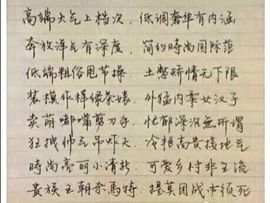 高端大气上档次 低调奢华有内涵
奔放洋气有深度 简约時尚国际范
低端粗俗甩节操 土憋矫情无下限
装模作样绿茶婊 外猛内柔女汉子
卖萌嘟嘴剪刀手 忧郁深沉無所谓
狂拽帅气吊炸天 冷艳高贵接地气
時尚亮丽小清新 可爱乡村非主流
贵族王朝杀馬特 提莫团战必须死